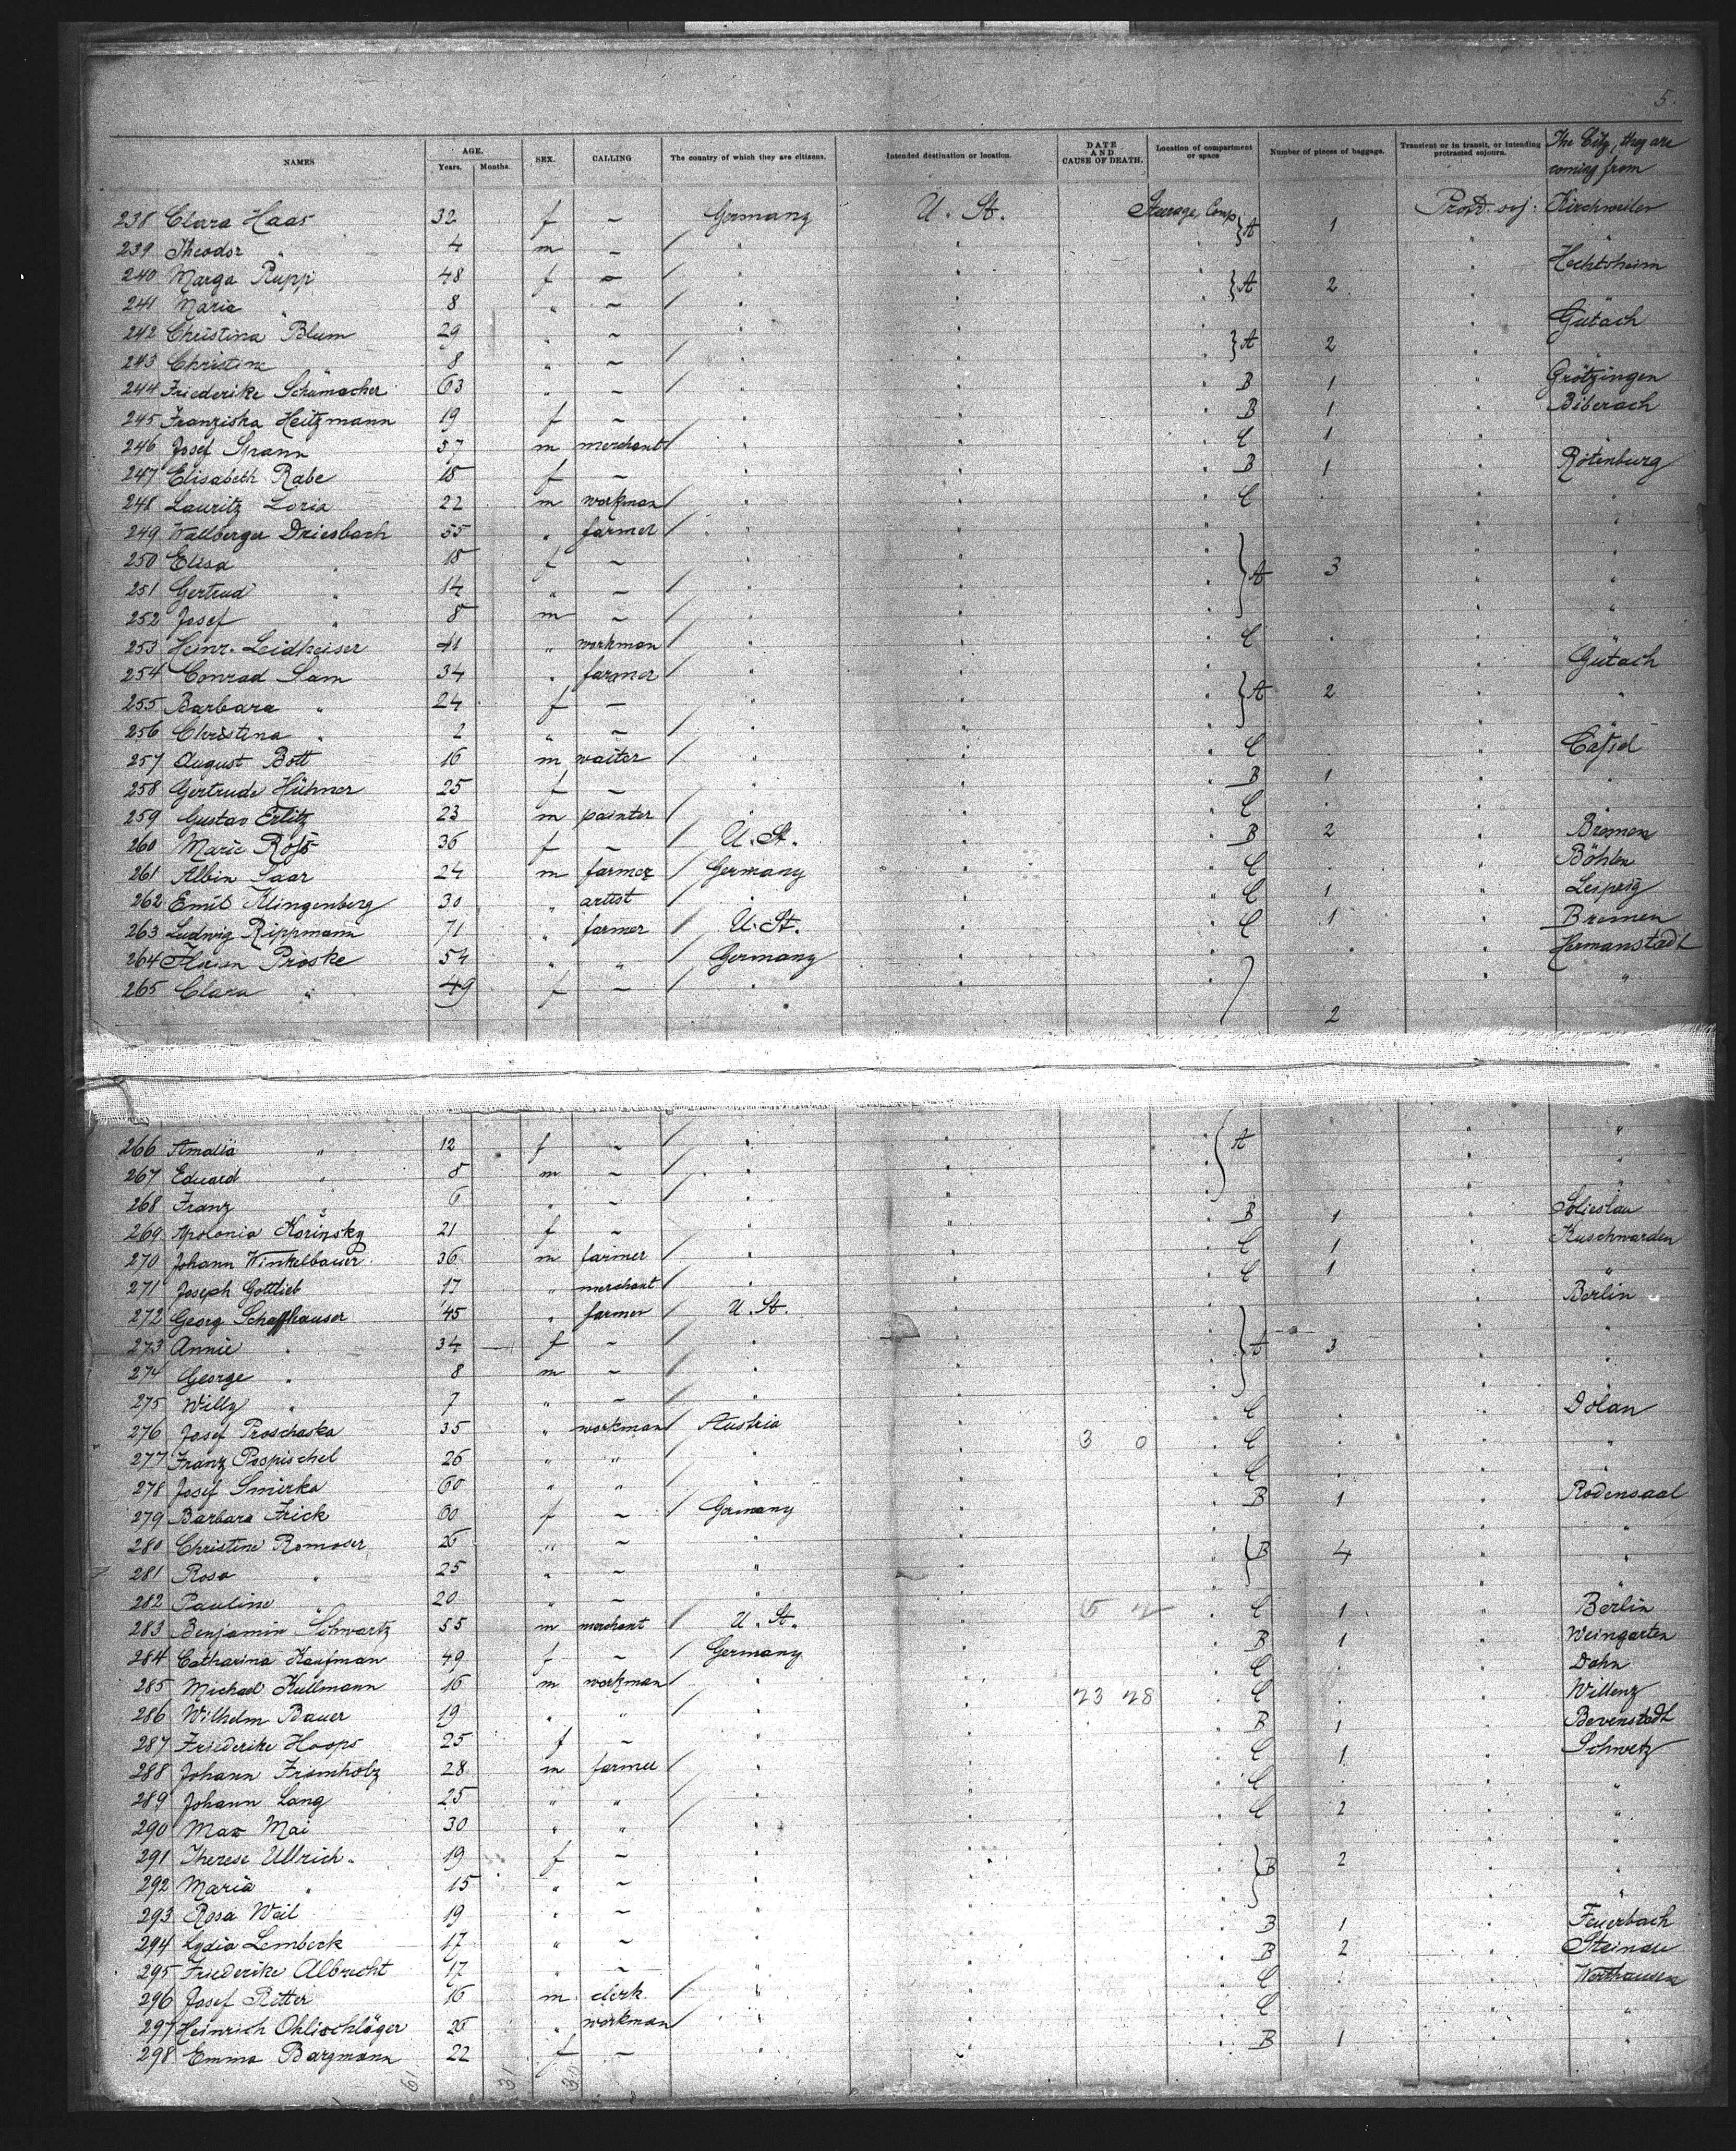 5.
NAMES AGE. Years. Months. SEX. CALLING The country of which they are citizens. Intended destination or location. DATE AND CAUSE OF DEATH. Location of compartment or space Number of pieces of baggage. Transient or in transit, or intending protracted sojourn. The City, they are coming from
238 Clara Haas 32 f – Germany U. St. Steerage Comp A 1 Prot. soj. Kirchweiler
239 Theodor " 4 m – " "
240 Marga Rupp 48 f – " " A 2 " Hechtsheim
241 Maria " 8 " – " "
242 Christina Blum 29 " – " " A 2 " Gutach
243 Christine 8 " – " "
244 Friederike Schumacher 63 " – " " B 1 " Grötzingen
245 Franziska Heitzmann 19 f – " " B 1 " Biberach
246 Josef Spann 57 m merchant " " C 1 "
247 Elisabeth Rabe 18 f – " " B 1 " Rotenburg
248 Lauritz Loria 22 m workman " " C . " "
249 Wallberger Driesbach 55 " farmer " "
250 Elisa " 18 f – " " A 3 " "
251 Gertrud " 14 " – " " " "
252 Josef " 8 m – " " " "
253 Heinr. Leidheiser 41 " workman " " C . "
254 Conrad Lam 34 " farmer " " " Gutach
255 Barbara " 24 f – " " A 2 " "
256 Christina " 2 " – " " "
257 August Bott 16 m waiter " " C " Cassel
258 Gertrude Hühner 25 f – " " B 1 " "
259 Gustav Erlitz 23 m painter " " C . "
260 Marie Ross 36 f – U. St. " B 2 " Bremen
261 Albin Saar 24 m farmer Germany " C . " Böhlen
262 Emil Klingenberg 30 " artist " " C 1 " Leipzig
263 Ludwig Rippmann 71 " farmer U. St. " C 1 " Bremen
264 Proske 54 " " Germany " " Hermanstadt
265 Clara " 49 f – " " 2 " "
266 Amalia " 12 f – " " A " "
267 Eduard " 8 m – " " " "
268 Franz " 6 " – " " " "
269 Apolonia Korinsky 21 f – " " B 1 "
270 Johann Winkelbauer 36 m farmer " " C 1 " Kuschwarden
271 Joseph Gottlieb 17 " merchant " " C 1 " "
272 Georg Schaffhauser 45 " farmer U. St. " " Berlin
273 Annie " 34 f – " " A 3 " "
274 George " 8 m – " " " "
275 Willy " 7 " – " " " "
276 Josef Proschaska 35 " workman Austria " C . " Dolan
277 Franz Pospischel 26 " " " " 3 0 C . " "
278 Josef Smirka 60 " " " " C . " "
279 Barbara Frick 60 f – Germany " B 1 " Rodensaal
280 Christine Romoser 26 " – " " " "
281 Rosa " 25 " – " " B 4 " "
282 Pauline " 20 " – " " "
283 Benjamin Schwartz 55 m merchant U. St. " C 1 " Berlin
284 Catharina Kaufman 49 f – Germany " B 1 " Weingarten
285 Michael Kullmann 16 m workman " " C . " Dahn
286 Wilhelm Bauer 19 " " " " 23 28 C . " Willenz
287 Friederike Hoops 25 f – " " B 1 " Bevenstedt
288 Johann Fromholz 28 m farmer " " C 1 " Schwetz
289 Johann Lang 25 " " " " C . " "
290 Max Mai 30 " " " " C 2 " "
291 Therese Ullrich 19 f – " " B 2 " "
292 Maria " 15 " – " " " "
293 Rosa Weil 19 " – " " B 1 " Feuerbach
294 Lydia Lembeck 17 " – " " B 2 " Steinau
295 Friederike Albrecht 17 " – " " C . "
296 Josef Ritter 16 m clerk " " C . " "
297 Heinrich Ohlischläger 26 " workman " "
298 Emma Bargmann 22 f – " " B 1 " "
61 31 30